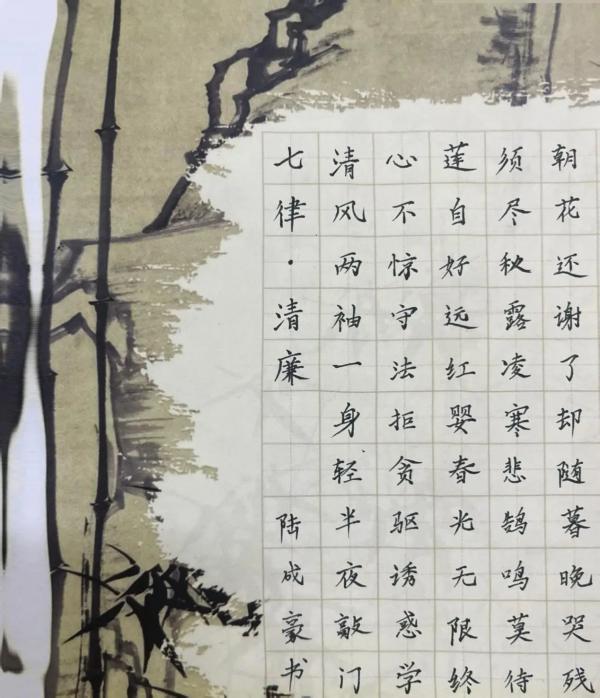 七律·清廉 陆成豪书
清风两袖一身轻半夜敲门
心不惊守法拒贪驱诱惑学
莲自好远红婴春光无限终
须尽秋露凌寒悲鹄鸣莫待
朝花还谢了却随暮晚哭残